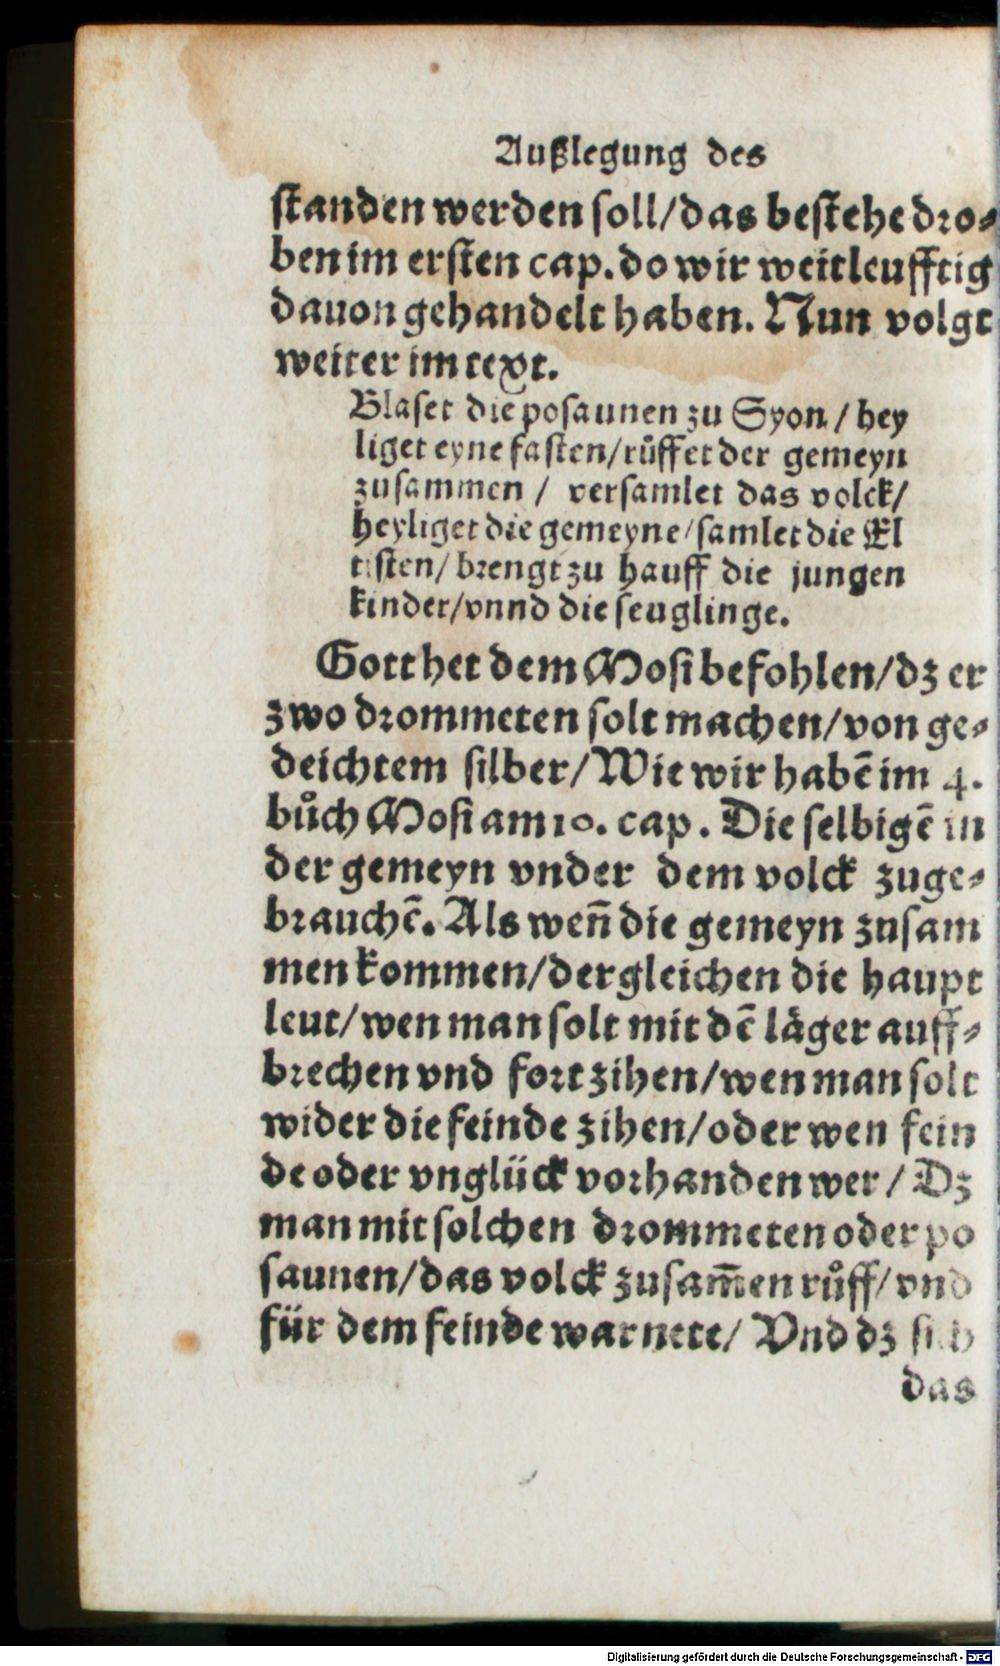 Außlegung des
standen werden soll/das bestehe dro⸗
ben im ersten cap. do wir weitleufftig
dauon gehandelt haben. Nun volgt
weiter im text.
Blaset die posaunen zu Syon/hey
liget eyne fasten/růffet der gemeyn
zusammen/ versamlet das volck/
heyliget die gemeyne/samlet die El
tisten/brengt zu hauff die jungen
kinder/vnnd die seuglinge.
Gott het dem Mosi befohlen/dz er
zwo drommeten solt machen/von ge⸗
deichtem silber/Wie wir habē im 4.
bůch Mosi am 10. cap. Die selbigē in
der gemeyn vnder dem volck zuge⸗
brauchē. Als weñ die gemeyn zusam
men kommen/dergleichen die haupt
leut/wen man solt mit dē läger auff⸗
brechen vnd fort zihen/wen man solt
wider die feinde zihen/oder wen fein
de oder vnglück vorhanden wer/ Dz
man mit solchen drommeten oder po
saunen/das volck zusam̄en růff/vnd
für dem feinde warnete/ Vnd dz sich
das
Digitalisierung gefördert durch die Deutsche Forschungsgemeinschaft - DFG